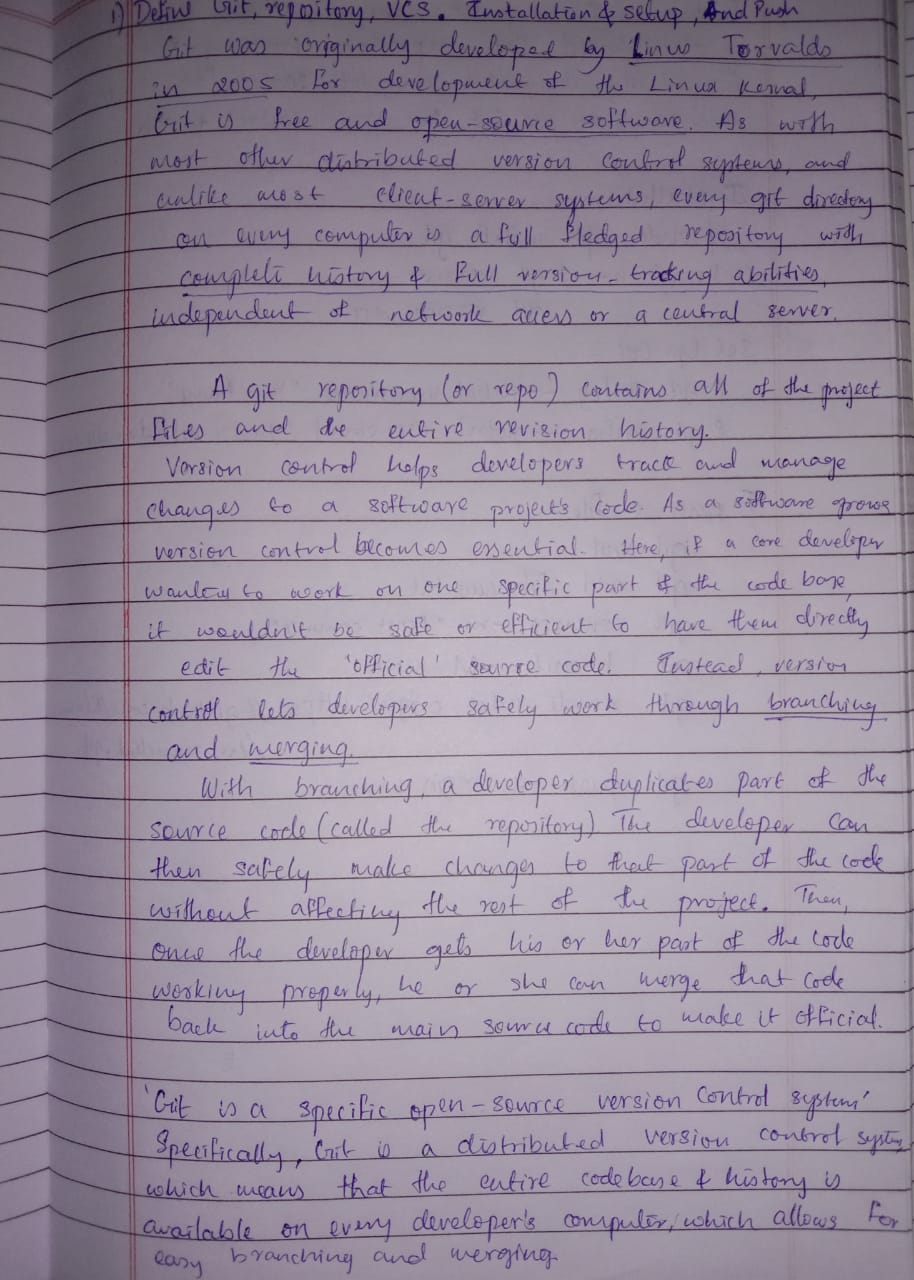 1) Define Git, repository, VCS. Installation & setup, And Push
Git was originally developed by Linus Torvalds
in 2005 for development of the Linux Kernal,
Git is free and open-source software. As with
most other distributed version control systems, and
unlike most client-server systems, every git directory
on every computer is a full fledged repository with
complete history & full version-tracking abilities,
independent of network access or a central server.
A git repository (or repo) contains all of the project
files and the entire revision history.
Version control helps developers track and manage
changes to a software project's code. As a software grows
version control becomes essential. Here, if a core developer
wanted to work on one specific part of the code base,
it wouldn't be safe or efficient to have them directly
edit the 'official' source code. Instead, version
control lets developers safely work through branching
and merging.
With branching, a developer duplicates part of the
source code (called the repository) The developer can
then safely make changes to that part of the code
without affecting the rest of the project. Then,
once the developer gets his or her part of the code
working properly, he or she can merge that code
back into the main source code to make it official.
'Git is a specific open-source version control system'
Specifically, Git is a distributed version control system,
which means that the entire codebase & history is
available on every developer's computer, which allows for
easy branching and merging.